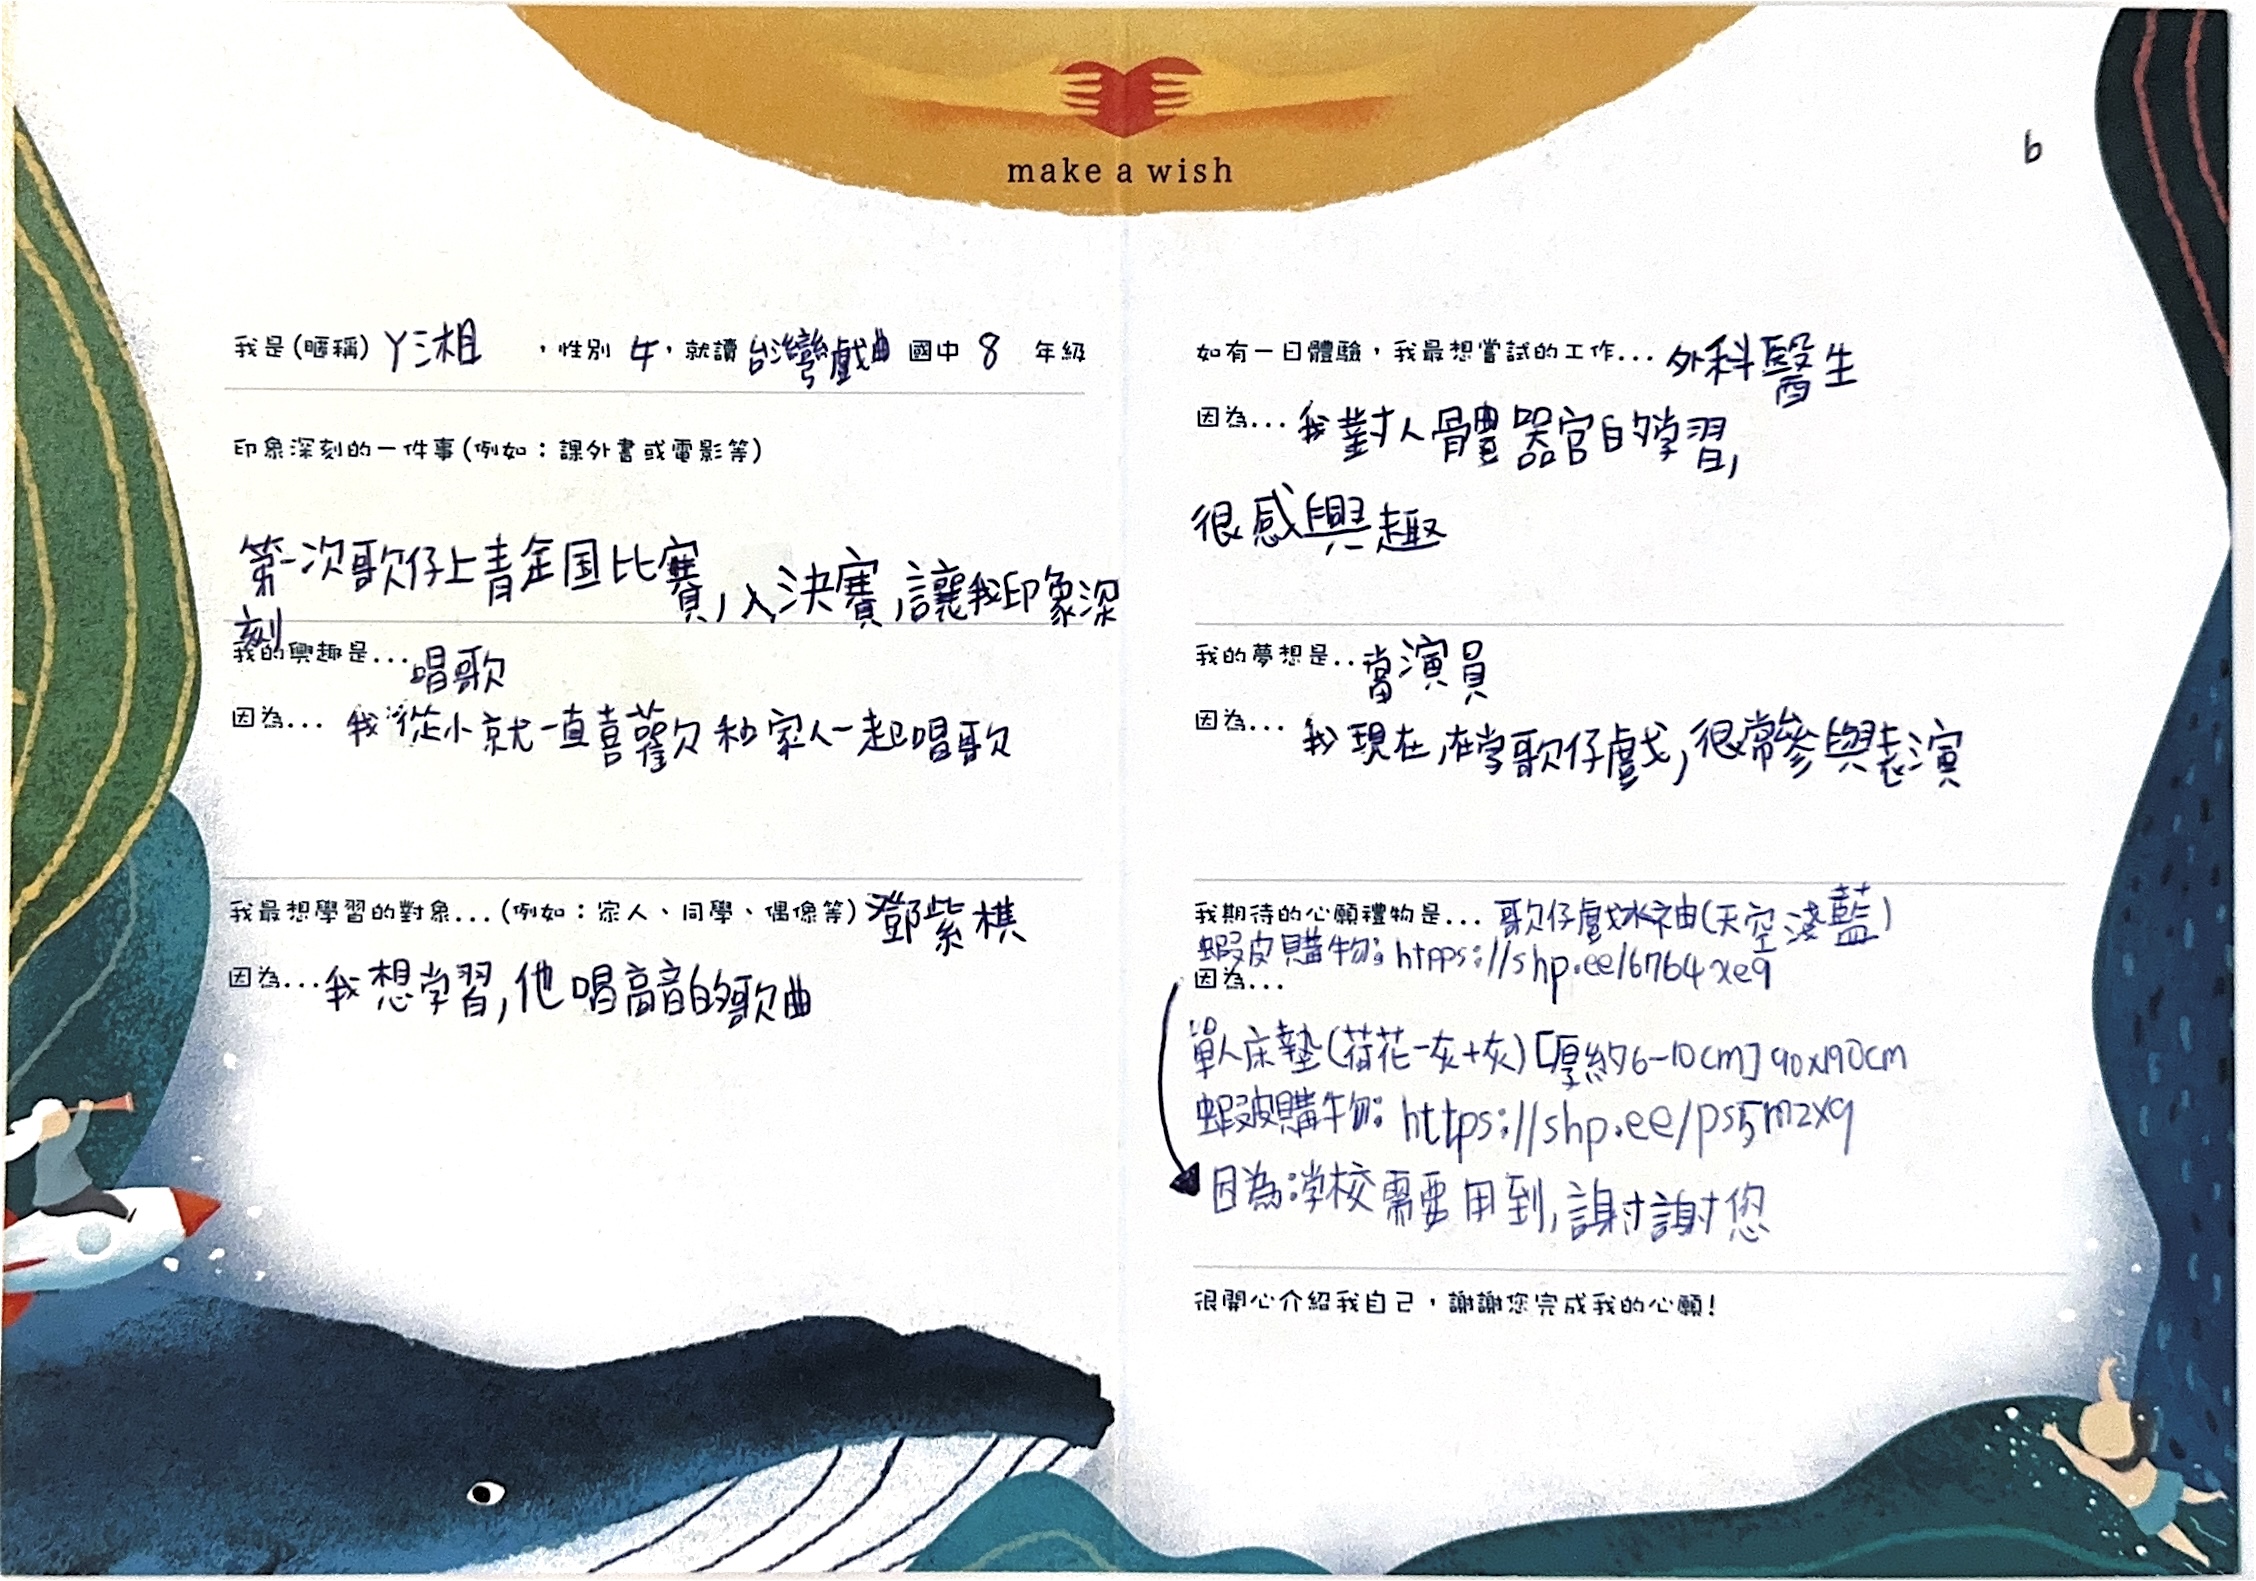 make a wish
b
我是(暱稱) ㄚ三相 ,性別 女,就讀 台灣戲曲 國中 8 年級
印象深刻的一件事(例如:課外書或電影等)
第一次歌仔上青年国比賽,入決賽,讓我印象深
刻
我的興趣是...唱歌
因為... 我從小就一直喜歡和家人一起唱歌
我最想學習的對象...(例如:家人、同學、偶像等) 鄧紫棋
因為...我想学習,他唱高音的歌曲
如有一日體驗,我最想嘗試的工作... 外科醫生
因為... 我對人體器官的学習,
很感興趣
我的夢想是...當演員
因為... 我現在,在学歌仔戲,很常參與表演
我期待的心願禮物是... 歌仔戲水袖(天空淺藍)
蝦皮購物: htpps://shp.ee/6764xe9
因為...
單人床墊(荷花-灰+灰)[厚約6-10cm]90x190cm
蝦皮購物: https://shp.ee/ps5mzx9
因為:学校需要用到,謝謝您
很開心介紹我自己,謝謝您完成我的心願!